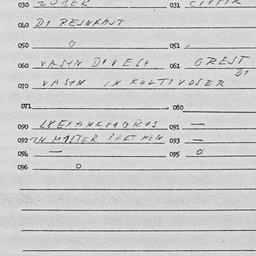 030 ZUBER 031
040 DI REJNKAJT
050 0 051
060 VASTN DIVEST 061 GREST DI
070 VASTN IN KOLTIVOSER
071 080
090 091 —
092 IN MALTER PARTMEN 093 —
094 — 095 0
096 0